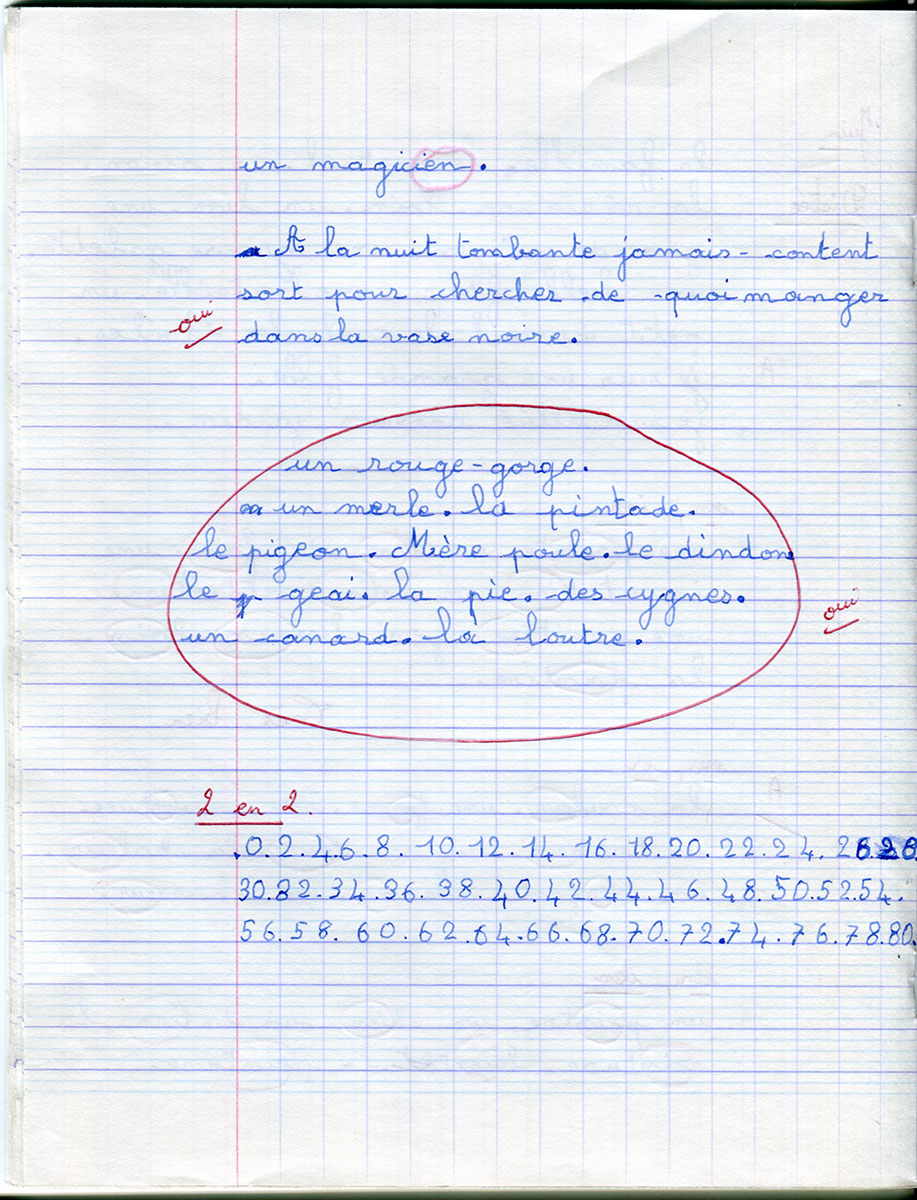 un magicien.
A la nuit tombante jamais-content
sort pour chercher de quoi manger
oui
dans la vase noire.
un rouge-gorge.
un merle. la pintade.
le pigeon. Mère poule. le dindon
le geai. la pie. des cygnes.
oui
un canard. la loutre.
2 en 2.
.0.2.4.6.8.10.12.14.16.18.20.22.24.26.28.
30.32.34.36.38.40.42.44.46.48.50.52.54.
56.58.60.62.64.66.68.70.72.74.76.78.80.